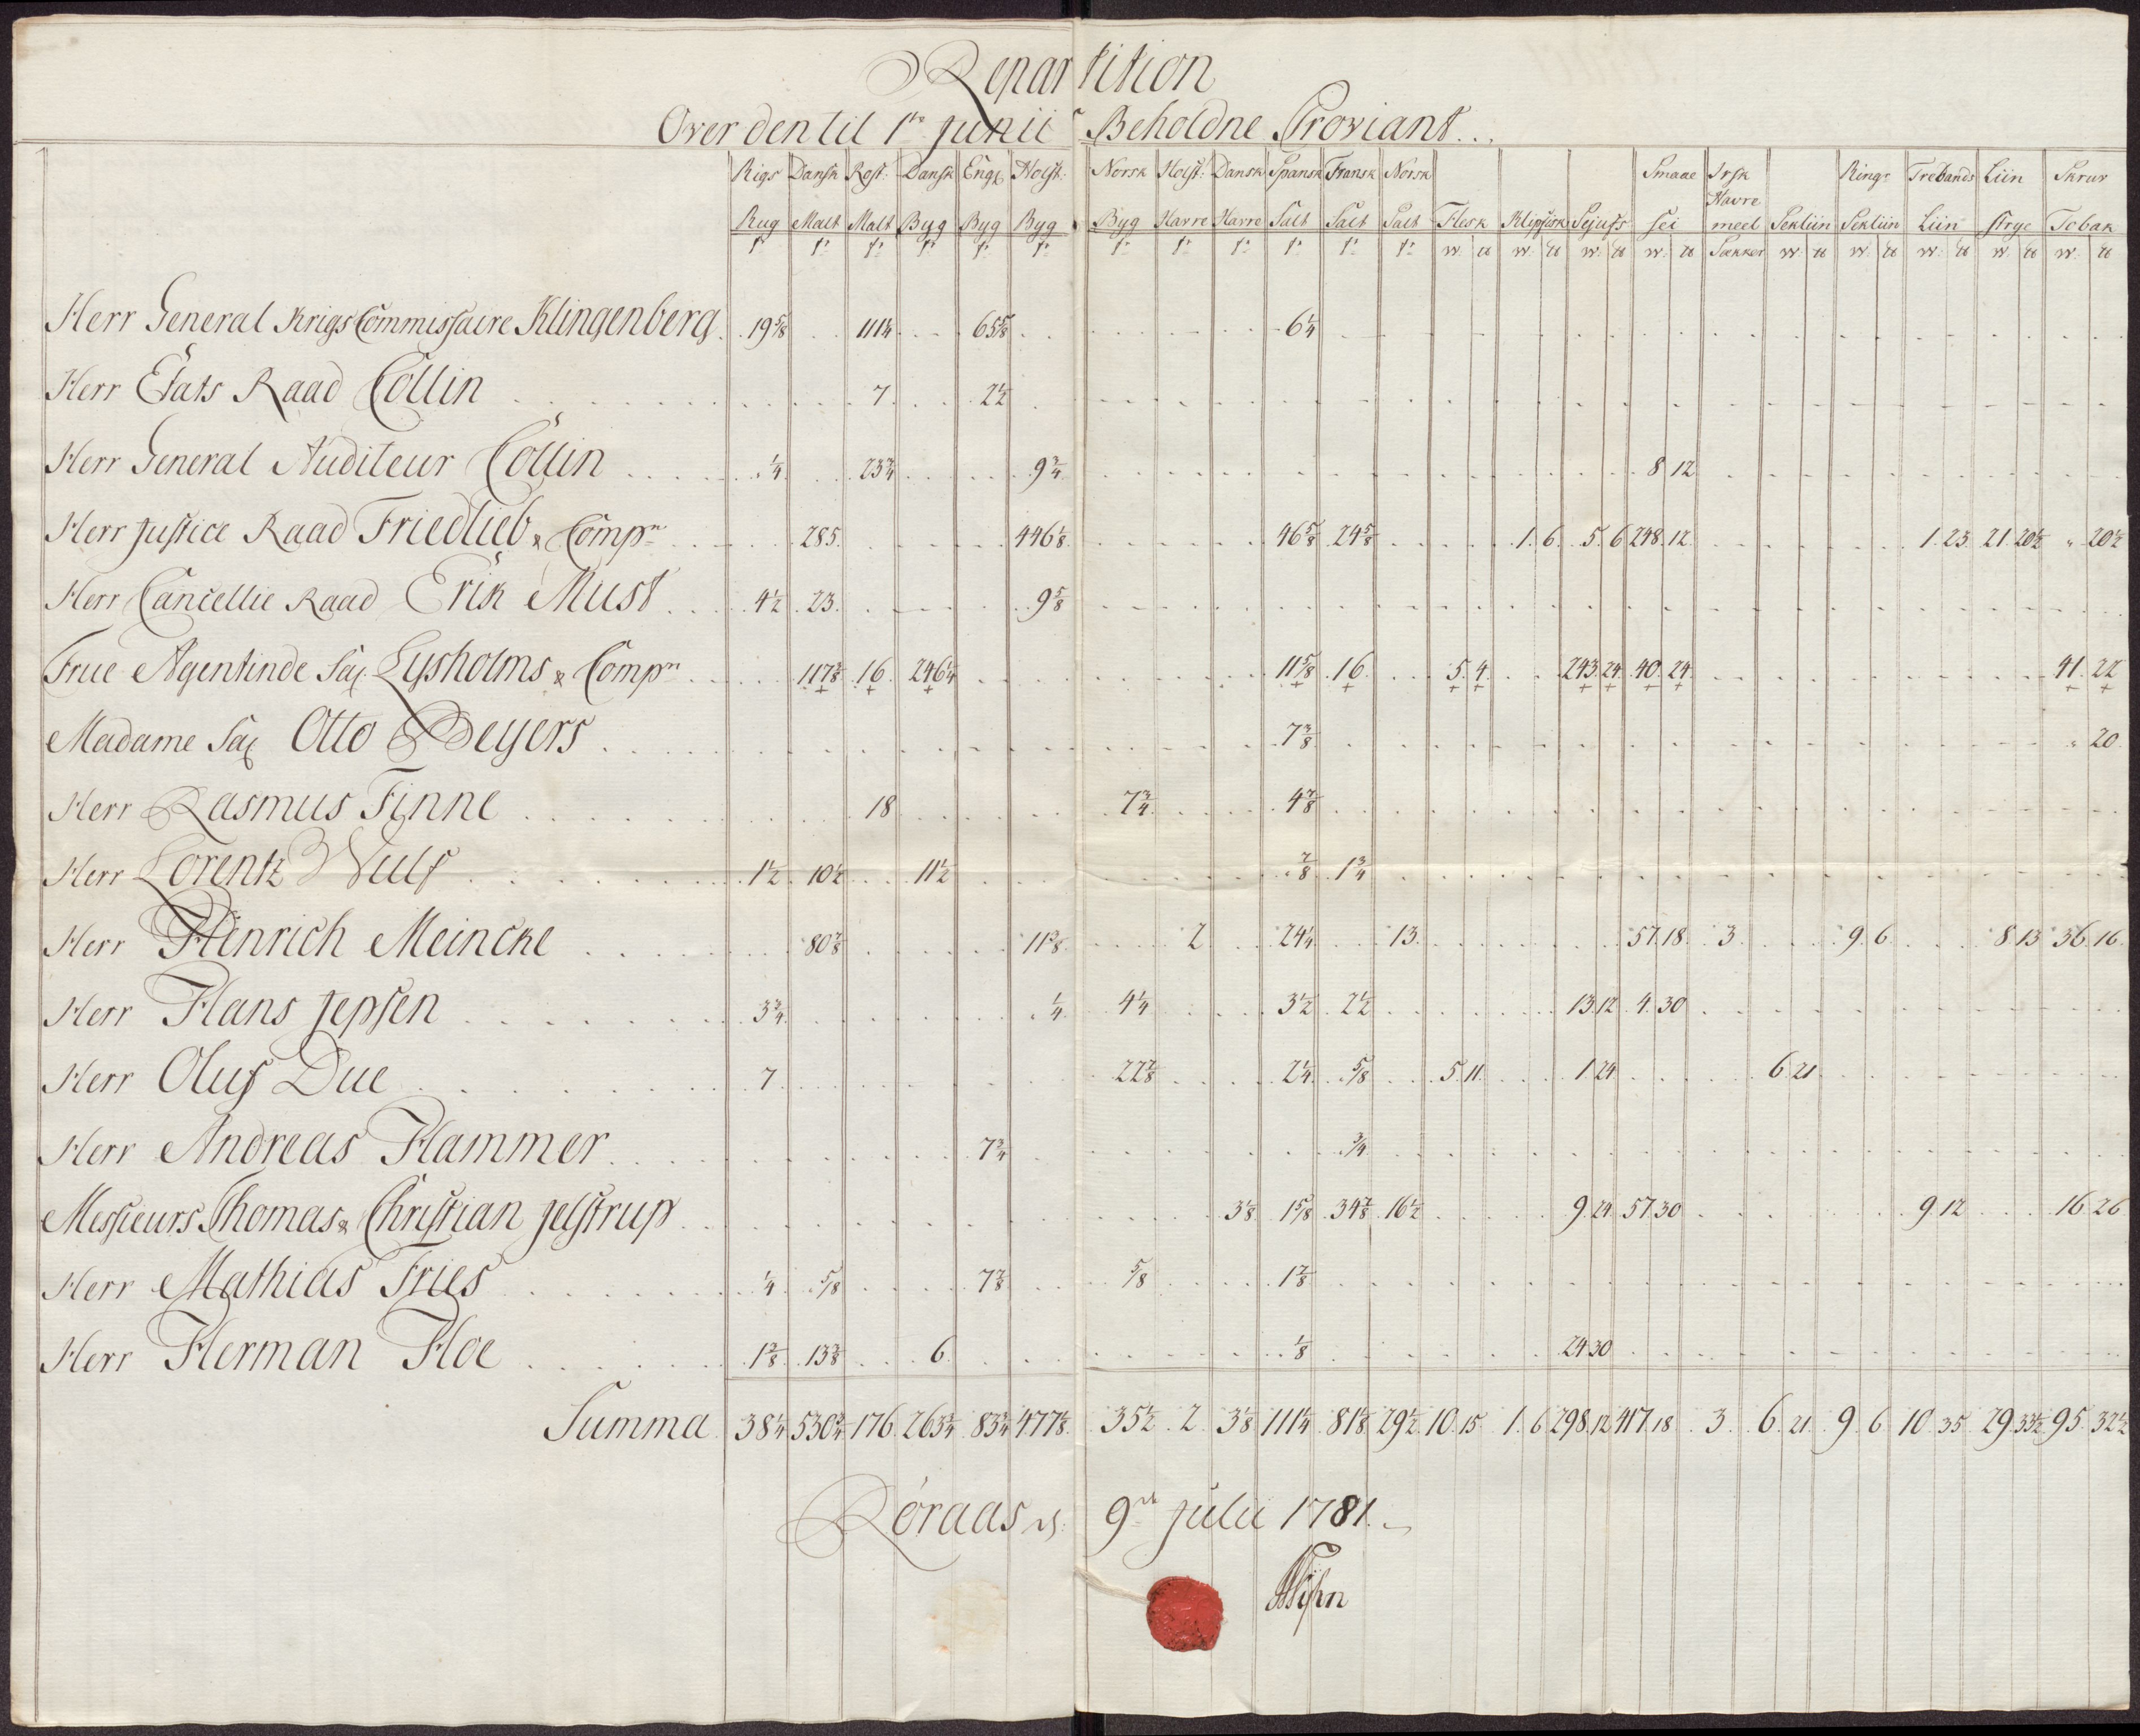 Repartition
Over den til 1te Junii Beholdne Proviant...
Rigs Dansk Rost: Dansk Engl Holst: Norsk Holst: Dansk Spansk Fransk Norsk Smaae Irsk Rings Trebands Liin Skruv
Havre
Rug Malt Malt Byg Byg Byg Byg Havre Havre Salt Salt Salt Flesk Klipfisk Sejufs sei meel Sekliin Sekliin Liin strye Tobak
Sækker
Herr General Krigs Commissaire Klingenberg 19 5/8 111 1/4 65 5/8 6 1/4
Herr Etats Raad Collin 7 2 1/2
Herr General Auditeur Collin 1/4 23 3/4 9 3/4 8 12
Herr Justice Raad Friedlieb & Compn 285 446 1/8 46 5/8 24 5/8 1 6 5 6 248 12 1 23 21 20 1/2 " 20 1/2
Herr Cancellie Raad Erik Must 4 1/2 23 9 5/8
Frue Agentinde Sal Lysholms & Compn 117 3/8 16 246 1/4 11 5/8 16 5 4 243 24 40 24 41 22
Madame Sal Otto Beyers 7 3/8 " 20
Herr Rasmus Finne 18 7 3/4 4 7/8
Herr Lorentz Wulf 1 1/2 10 1/2 11 1/2 7/8 1 3/4
Herr Hinrich Meincke 80 7/8 11 3/8 2 24 1/4 13 57 18 3 9 6 8 13 36 16
Herr Hans Jepsen 3 3/4 1/4 4 1/4 3 1/2 2 1/2 13 12 4 30
Herr Oluf Due 7 22 7/8 2 1/4 5/8 5 11 1 24 6 21
Herr Andreas Hammer 7 3/4 3/4
Messieurs Thomas & Christian Jelstrup 3 1/8 1 5/8 34 7/8 16 1/2 9 24 57 30 9 12 16 26
Herr Mathias Fries 1/4 5/8 7 7/8 5/8 1 7/8
Herr Herman Hoe 1 3/8 13 3/8 6 1/8 24 30
Summa 38 1/4 530 3/4 176 263 3/4 83 3/4 477 1/8 35 1/2 2 3 1/8 111 1/4 81 1/8 29 1/2 10 15 1 6 298 12 417 18 3 6 21 9 6 10 35 29 33 1/2 95 32 1/2
Röraas d: 9de Julii 1781.